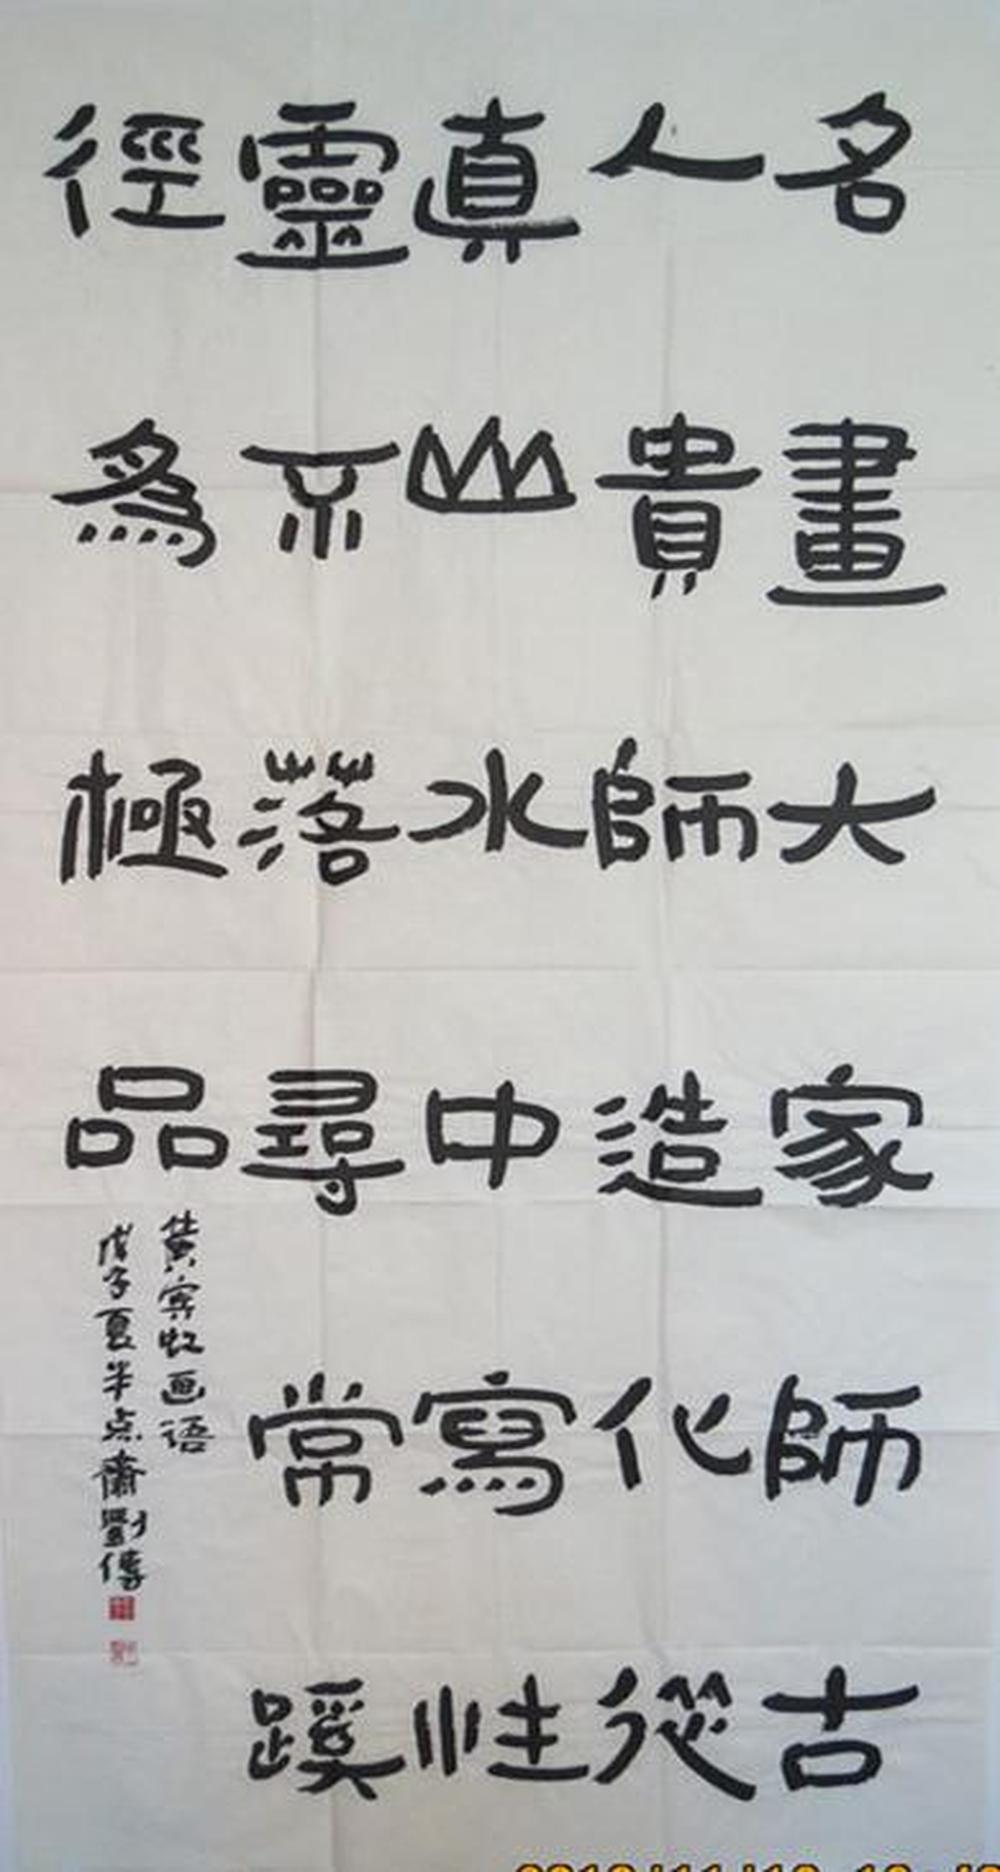 名畫大家師古
人貴師造化從
真山水中寫性
靈不落尋常蹊
徑為極品
黄宾虹画语
戊子夏半点斋劉傳